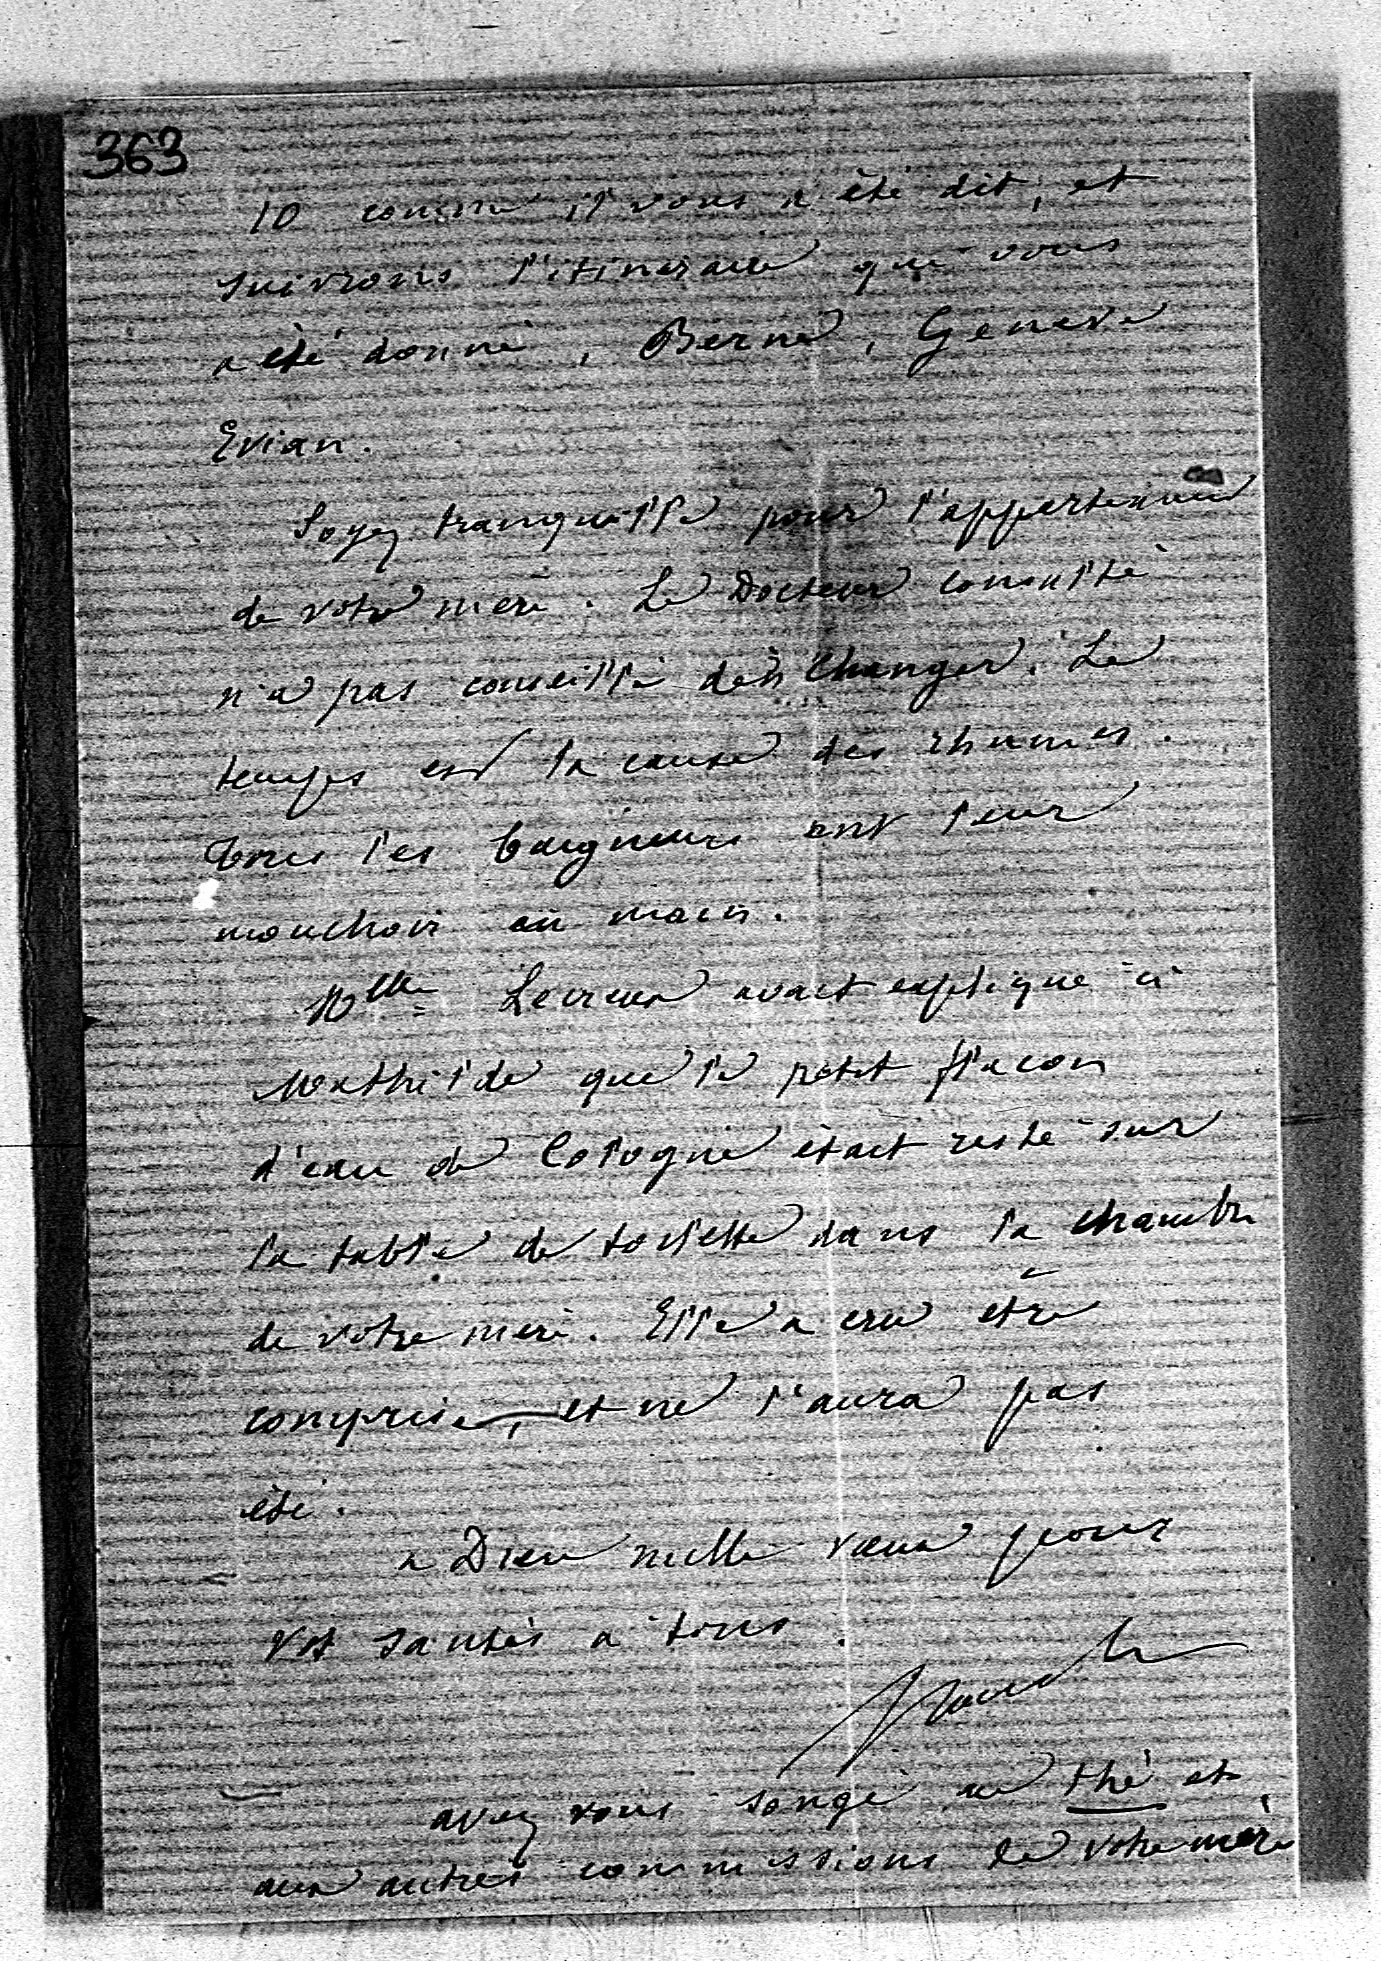 363
10 comme il vous a été dit, et
suivrons l'itineraire qui vous
a été donné, Berne, Genève
Evian.
Soyez tranquille pour l'appartement
de votre mère. Le Docteur consulté
n'a pas conseillé d'en changer. Le
temps est la cause des rhumes.
Tous les baigneurs ont leur
mouchoir en main.
Mlle avait expliqué à
Mathilde que le petit flacon
d'eau de Cologne était resté sur
la table de toilette dans la chambre
de votre mère. Elle a cru etre
comprise, et ne l'aura pas
été.
a Dieu mille vœux pour
vos santés a tous.
avez vous songé au thé et
aux autres commissions de votre mère